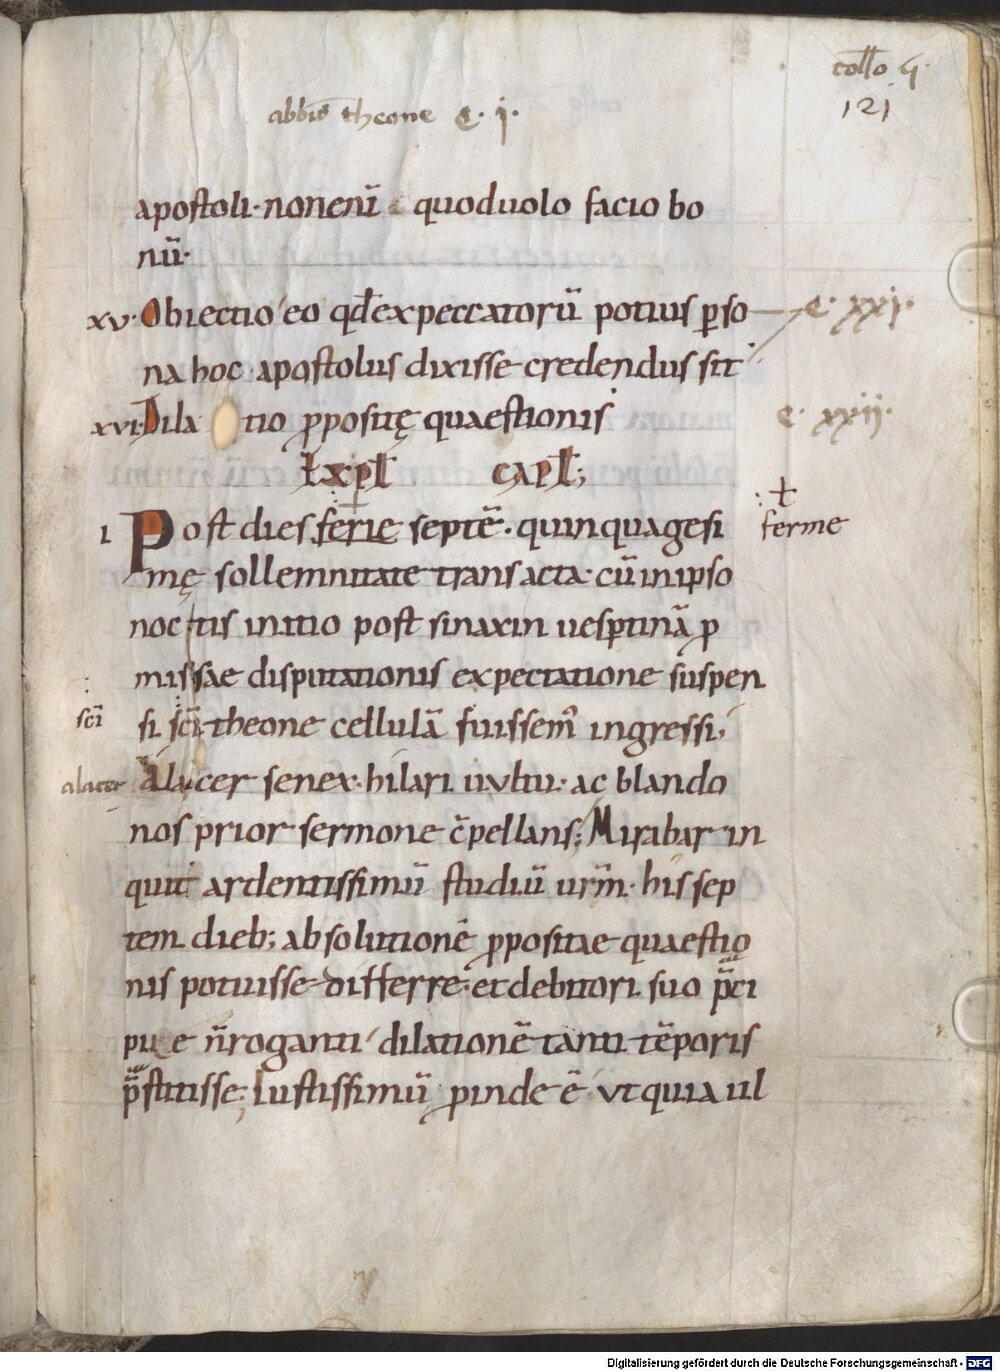 collo 4·
121
abbīs theone C· j·
apostoli· non enī quod uolo facio bo
nū·
xv· Obiectio eo qđ ex peccatorū potius ꝑso
C· xxj·
na hoc apostolus dixisse credendus sit
xvi· Dila tio ꝓpositę quaestionis
C· xxij·
EXPŁ CAPŁ;
ferme
I Post dies ferię septē· quinquagesi
mę sollemnitate transacta· cū in ipso
noctis initio post sinaxin uesꝑtinā ꝓ
missae disputationis expectatione suspen
sc̄i
si sc̄i theone cellulā fuissem᷒ ingressi,
alacer
Alacer senex· hilari uultu· ac blando
nos prior sermone c̄pellans; Mirabar in
quit ardentissimū studiū ur̄m· his sep
tem dieb; absolutionē ꝓpositae quaestio
nis potuisse differre· et debitori suo p̄ci
pue n̄ roganti dilationē tanti tēporis
p̄stitisse; Iustissimū ꝓinde ē ut quia ul
Digitalisierung gefördert durch die Deutsche Forschungsgemeinschaft - DFG